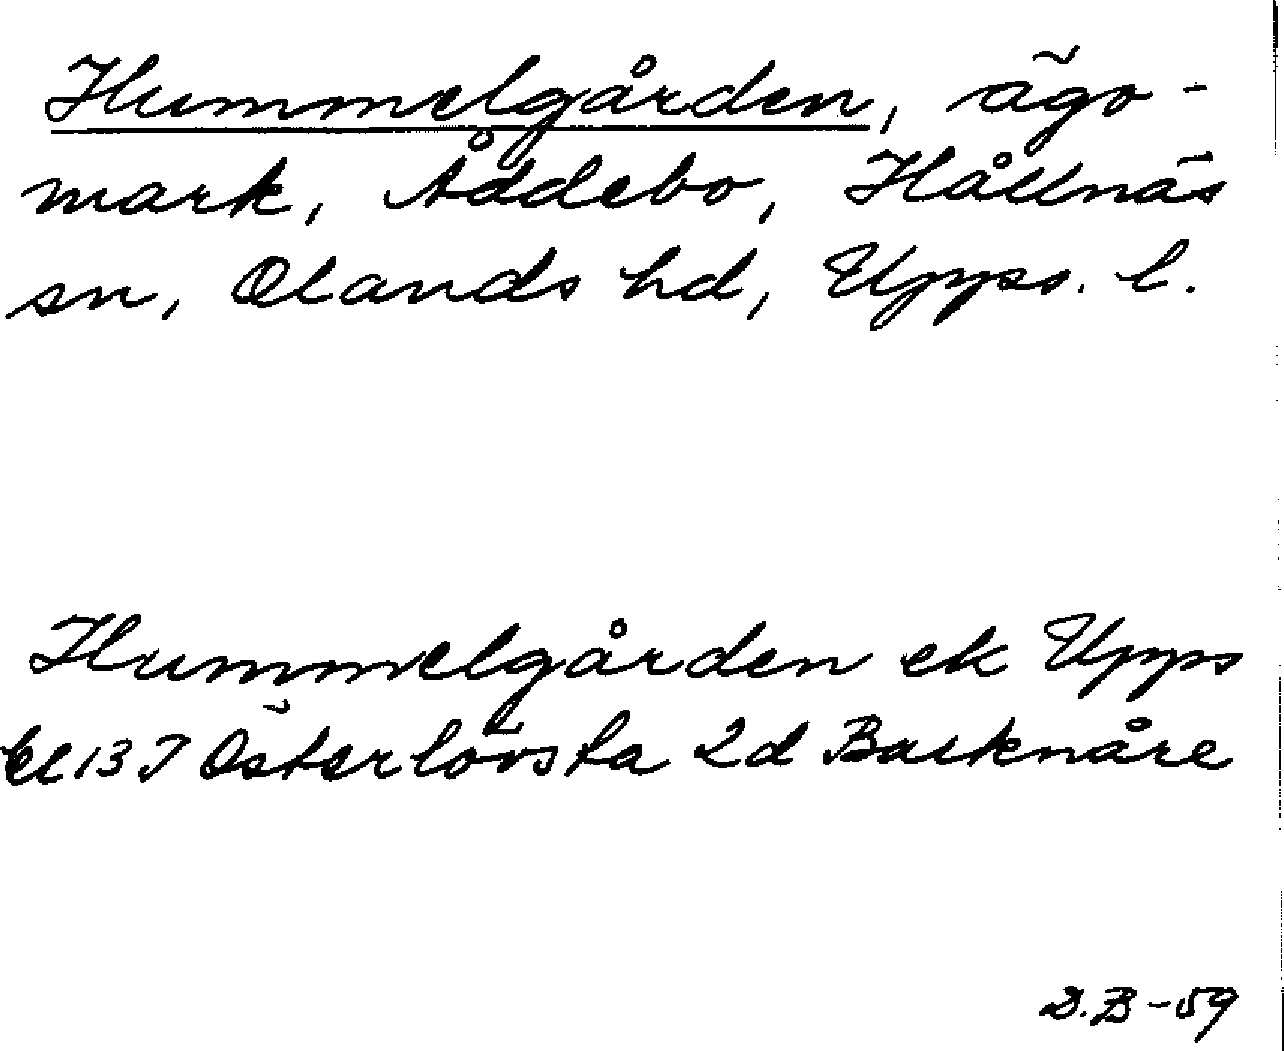 Hummelgården, ägo-
mark, Åddebo, Hållnäs
sn, Olands hd, Upps. l.
Hummelgården ek Upps
bl 13 J Österlövsta 2d Barknåre
D.B-59